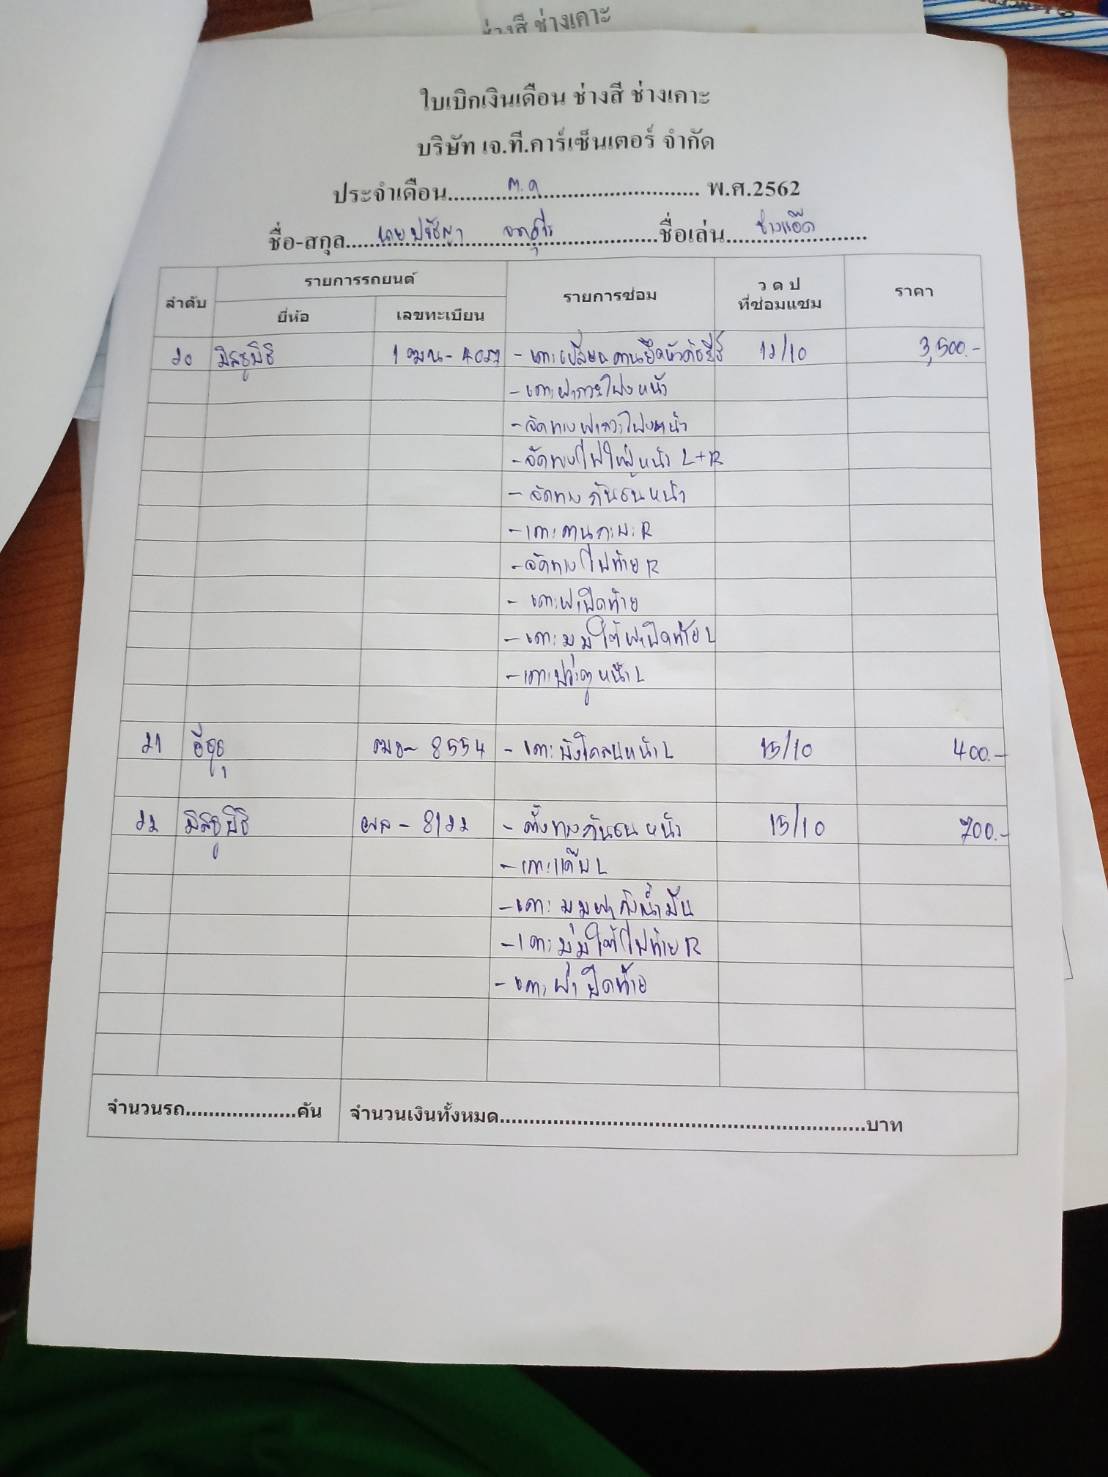 ช่างสี ช่างเคาะ
ใบเบิกเงินเดือน ช่างสี ช่างเคาะ
บริษัท เจ.ที.คาร์เซ็นเตอร์ จำกัด
ประจำเดือน ต.ค พ.ศ.2562
ชื่อ-สกุล นายปรัชญา ชื่อเล่น ช่างแอ๊ด
ลำดับ รายการรถยนต์ รายการซ่อม ว ด ป ที่ซ่อมแซม ราคา
ยี่ห้อ เลขทะเบียน
20 มิตซูบิชิ - เคาะเปลี่ยนคานยึดหัว 12/10 3,500.-
- เคาะฝากระโปรงหน้า
- จัดทางฝากระโปรงหน้า
- จัดทางไฟใหญ่หน้า L+R
- จัดทางกันชนหน้า
- เคาะคานกะบะ R
- จัดทางไฟท้าย R
- เคาะฝาปิดท้าย
- เคาะมุมใต้ฝาปิดท้าย L
- เคาะประตูหน้า L
21 อีซูซุ 8554 - เคาะบังโคลนหน้า L 15/10 400.-
22 มิตซูบิชิ ผล - 8122 - ตั้งทางกันชนหน้า 15/10 700.-
- เคาะแค๊ป L
- เคาะมุมฝาถังน้ำมัน
- เคาะมุมใต้ไฟท้าย R
- เคาะฝาปิดท้าย
จำนวนรถ....................คัน จำนวนเงินทั้งหมด..............................................................บาท